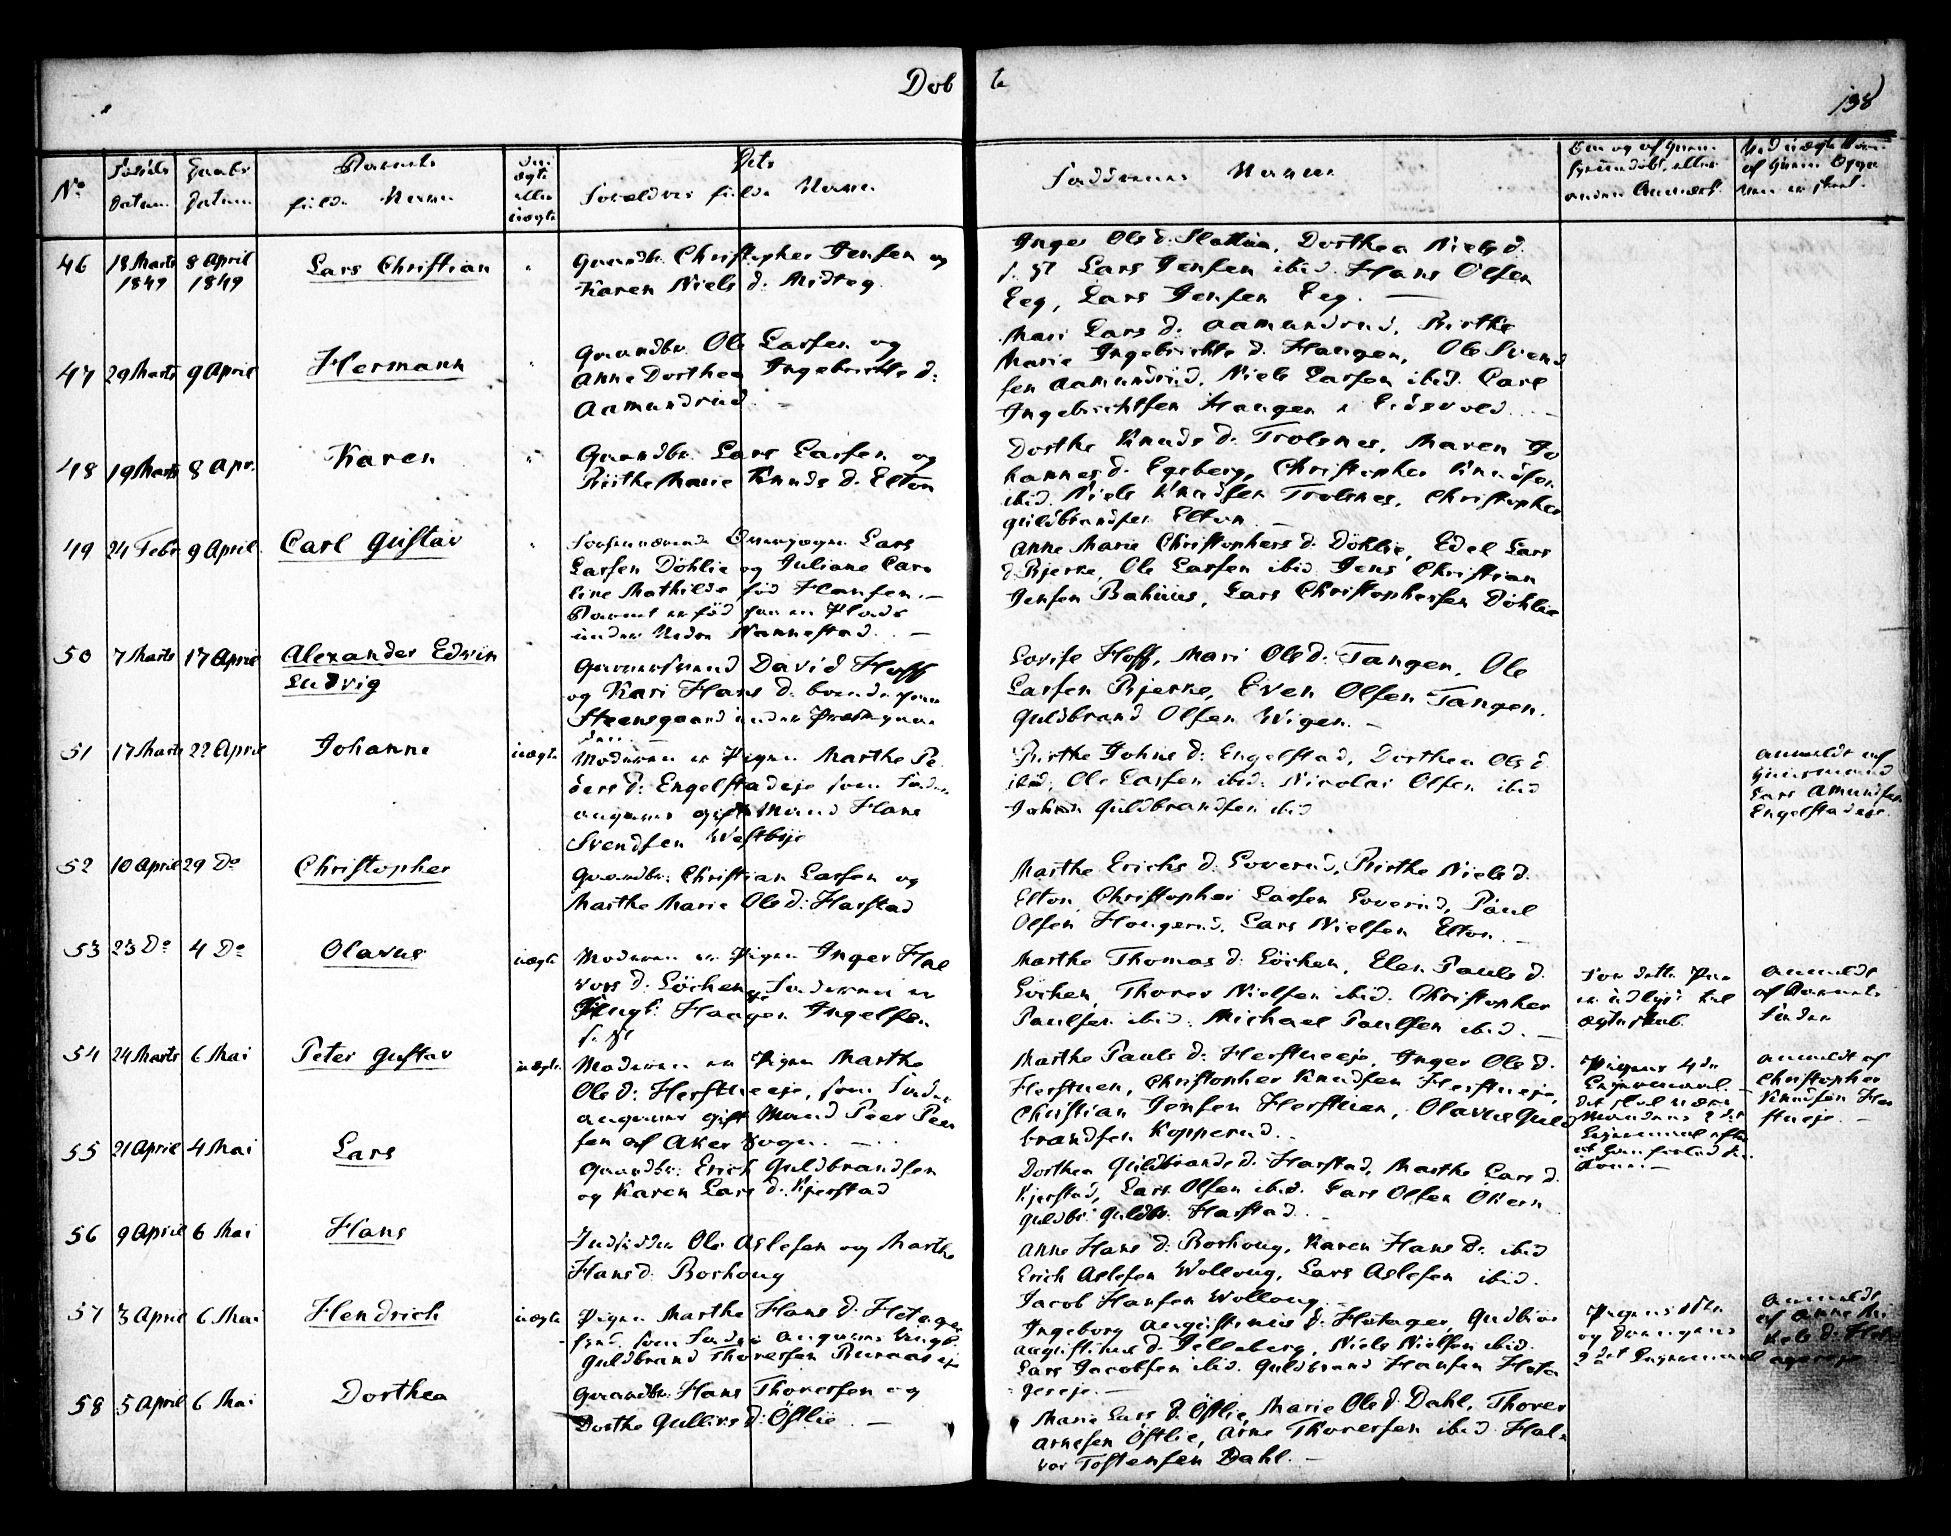 Døb
te
138
No
Fødsels
Datum
Daabs
Datum
Barnets
fulde Navn
Om
ægte
eller
uægte
Dets
Forældres fulde Navne
Faddrenes Navne
46
18 Marts
1849
8 April
1849
Lars Christian
Gaardbr. Christopher Jensen og
Karen Niels d. Midteg
Inger Ols d. Slattum, Dorthea Niels d.
Lars Jensen ibid. Hans Olsen
Eeg, Lars Jensen Eeg.
47
29 Marts
9 April
Hermann
Gaardbr. Ole Larsen og
Anne Dorthea Ingebrichts d:
Aamundrud
Mari Lars d. Aamundrud, Birthe
Marie Ingebrichts d. Haugen, Ole Svend
sen Aamundrud, Niels Larsen ibid. Carl
Ingebrichtsen Haugen i Eidsvold
48
19 Marts
8 Apr.
Karen
Gaardbr. Lars Larsen og
Birthe Marie Knuds d. Elton
Dorthe Knuds d. Trolsnes, Maren Jo
hannes d. Egeberg, Christopher Knudsen
ibid. Niels Knudsen Trolsnes, Christopher
Guldbrandsen Elton
49
24 Febr
9 April
Carl Gustav
Lars
Larsen Döhlie og Juliane Caro
line Mathilde fød Hansen.
Barnet er fød paa en Plads
under Nedre Nannestad
Anne Marie Christophers d. Döhlie, Edel Lars
d. Bjerke, Ole Larsen ibid. Jens Christian
Jensen Bahuus, Lars Christophersen Döhlie
50
7 Marts
17 April
Alexander Edvin
Ludvig
David Hoff
og Kari Hans d. boende paa
Steensgaard under Præstegaar
den
Lovise Hoff, Mari Ols d: Tangen, Ole
Larsen Bjerke, Even Olsen Tangen.
Guldbrand Olsen Wigen.
51
17 Marts
22 April
Johanne
uægte
Moderen er Pigen Marthe Pe
ders d: Engelstadeje som Fader
angives gift Mand Hans
Svendsen Westbye
Birthe Johns d: Engelstad, Dorthea Ols d.
ibid, Ole Larsen ibid. Nicolai Olsen ibid
Johan Guldbrandsen ibid
Anmeldt af
Huusmand
Lars Amundsen
Engelstadeje
52
10 April
29 Do
Christopher
Gaardbr: Christian Larsen og
Marthe Marie Ols d: Harstad
Marthe Erichs d: Loverud, Birthe Niels d.
Elton, Christopher Larsen Loverud, Paul
Olsen Haugerud, Lars Nielsen Elton
53
23 Do
4 Do
Olavus
uægte
Moderen er Pigen Inger Hal
vors d. Löchen, Faderen er
Ungk: Haagen Ingelsen
Marthe Thomas d: Löchen, Elen Pauls d.
Löchen, Thorer Nielsen ibid. Christopher
Paulsen ibid. Michael Paulsen ibid.
For dette Par
er udlyst til
Ægteskab.
Anmeldt
af Barnets
Fader
54
24 Marts
6 Mai
Peter Gustav
uægte
Moderen er Pigen Marthe
Ols d: Herstueeje, som Fader
angives gift Mand Peer Peer
sen af Aker Sogn.
Marthe Pauls d: Herstueeje, Inger Ols d.
Herstuen, Christopher Knudsen Herstueje,
Christian Jensen Herstuen, Olavus Guld
brandsen Kopperud
Pigens 4de
Leiermaal.
det skal være
Mandens 2det
Leiermaal efter
at han forlod sin
Kone.
Anmeldt af
Christopher
Knudsen Her
stueje.
55
21 April
4 Mai
Lars
Gaardbr: Erich Guldbrandsen
og Karen Lars d. Kjerstad
Dorthea Guldbrands d: Harstad, Marthe Lars d.
Kjerstad, Lars Olsen ibid. Lars Olsen Økern
Guldbr. Guldbr. Harstad.
56
9 April
6 Mai
Hans
Inderster Ole Aslesen og Marthe
Hans d: Borhoug
Anne Hans d: Borhoug, Karen Hans d: ibid
Erich Aslesen Wolloug, Lars Aslesen ibid.
Jacob Hansen Wolloug
57
3 April
6 Mai
Hendrich
uægte
Pigen Marthe Hans d. Hotager
som Fader angives Ungk.
Guldbrand Thoresen Buraas eje
Ingeborg Augustinus d: Hotager, Gudbjør
Augustinus d. Jelleberg, Niels Nielsen ibid.
Lars Jacobsen ibid. Guldbrand Hansen Hota
gereje
Pigens 1ste
og Drengens
2det Leiermaal
Anmeldt
af Anne Mi
kels d: Hot
agereje
58
5 April
6 Mai
Dorthea
Gaardbr. Hans Thoresen og
Dorthe Gullivs d: Östlie
Marie Lars d. Östlie, Marie Ols d. Dahl, Thorer
Arnesen Östlie, Arne Thoresen ibid Hal-
vor Tostensen Dahl.